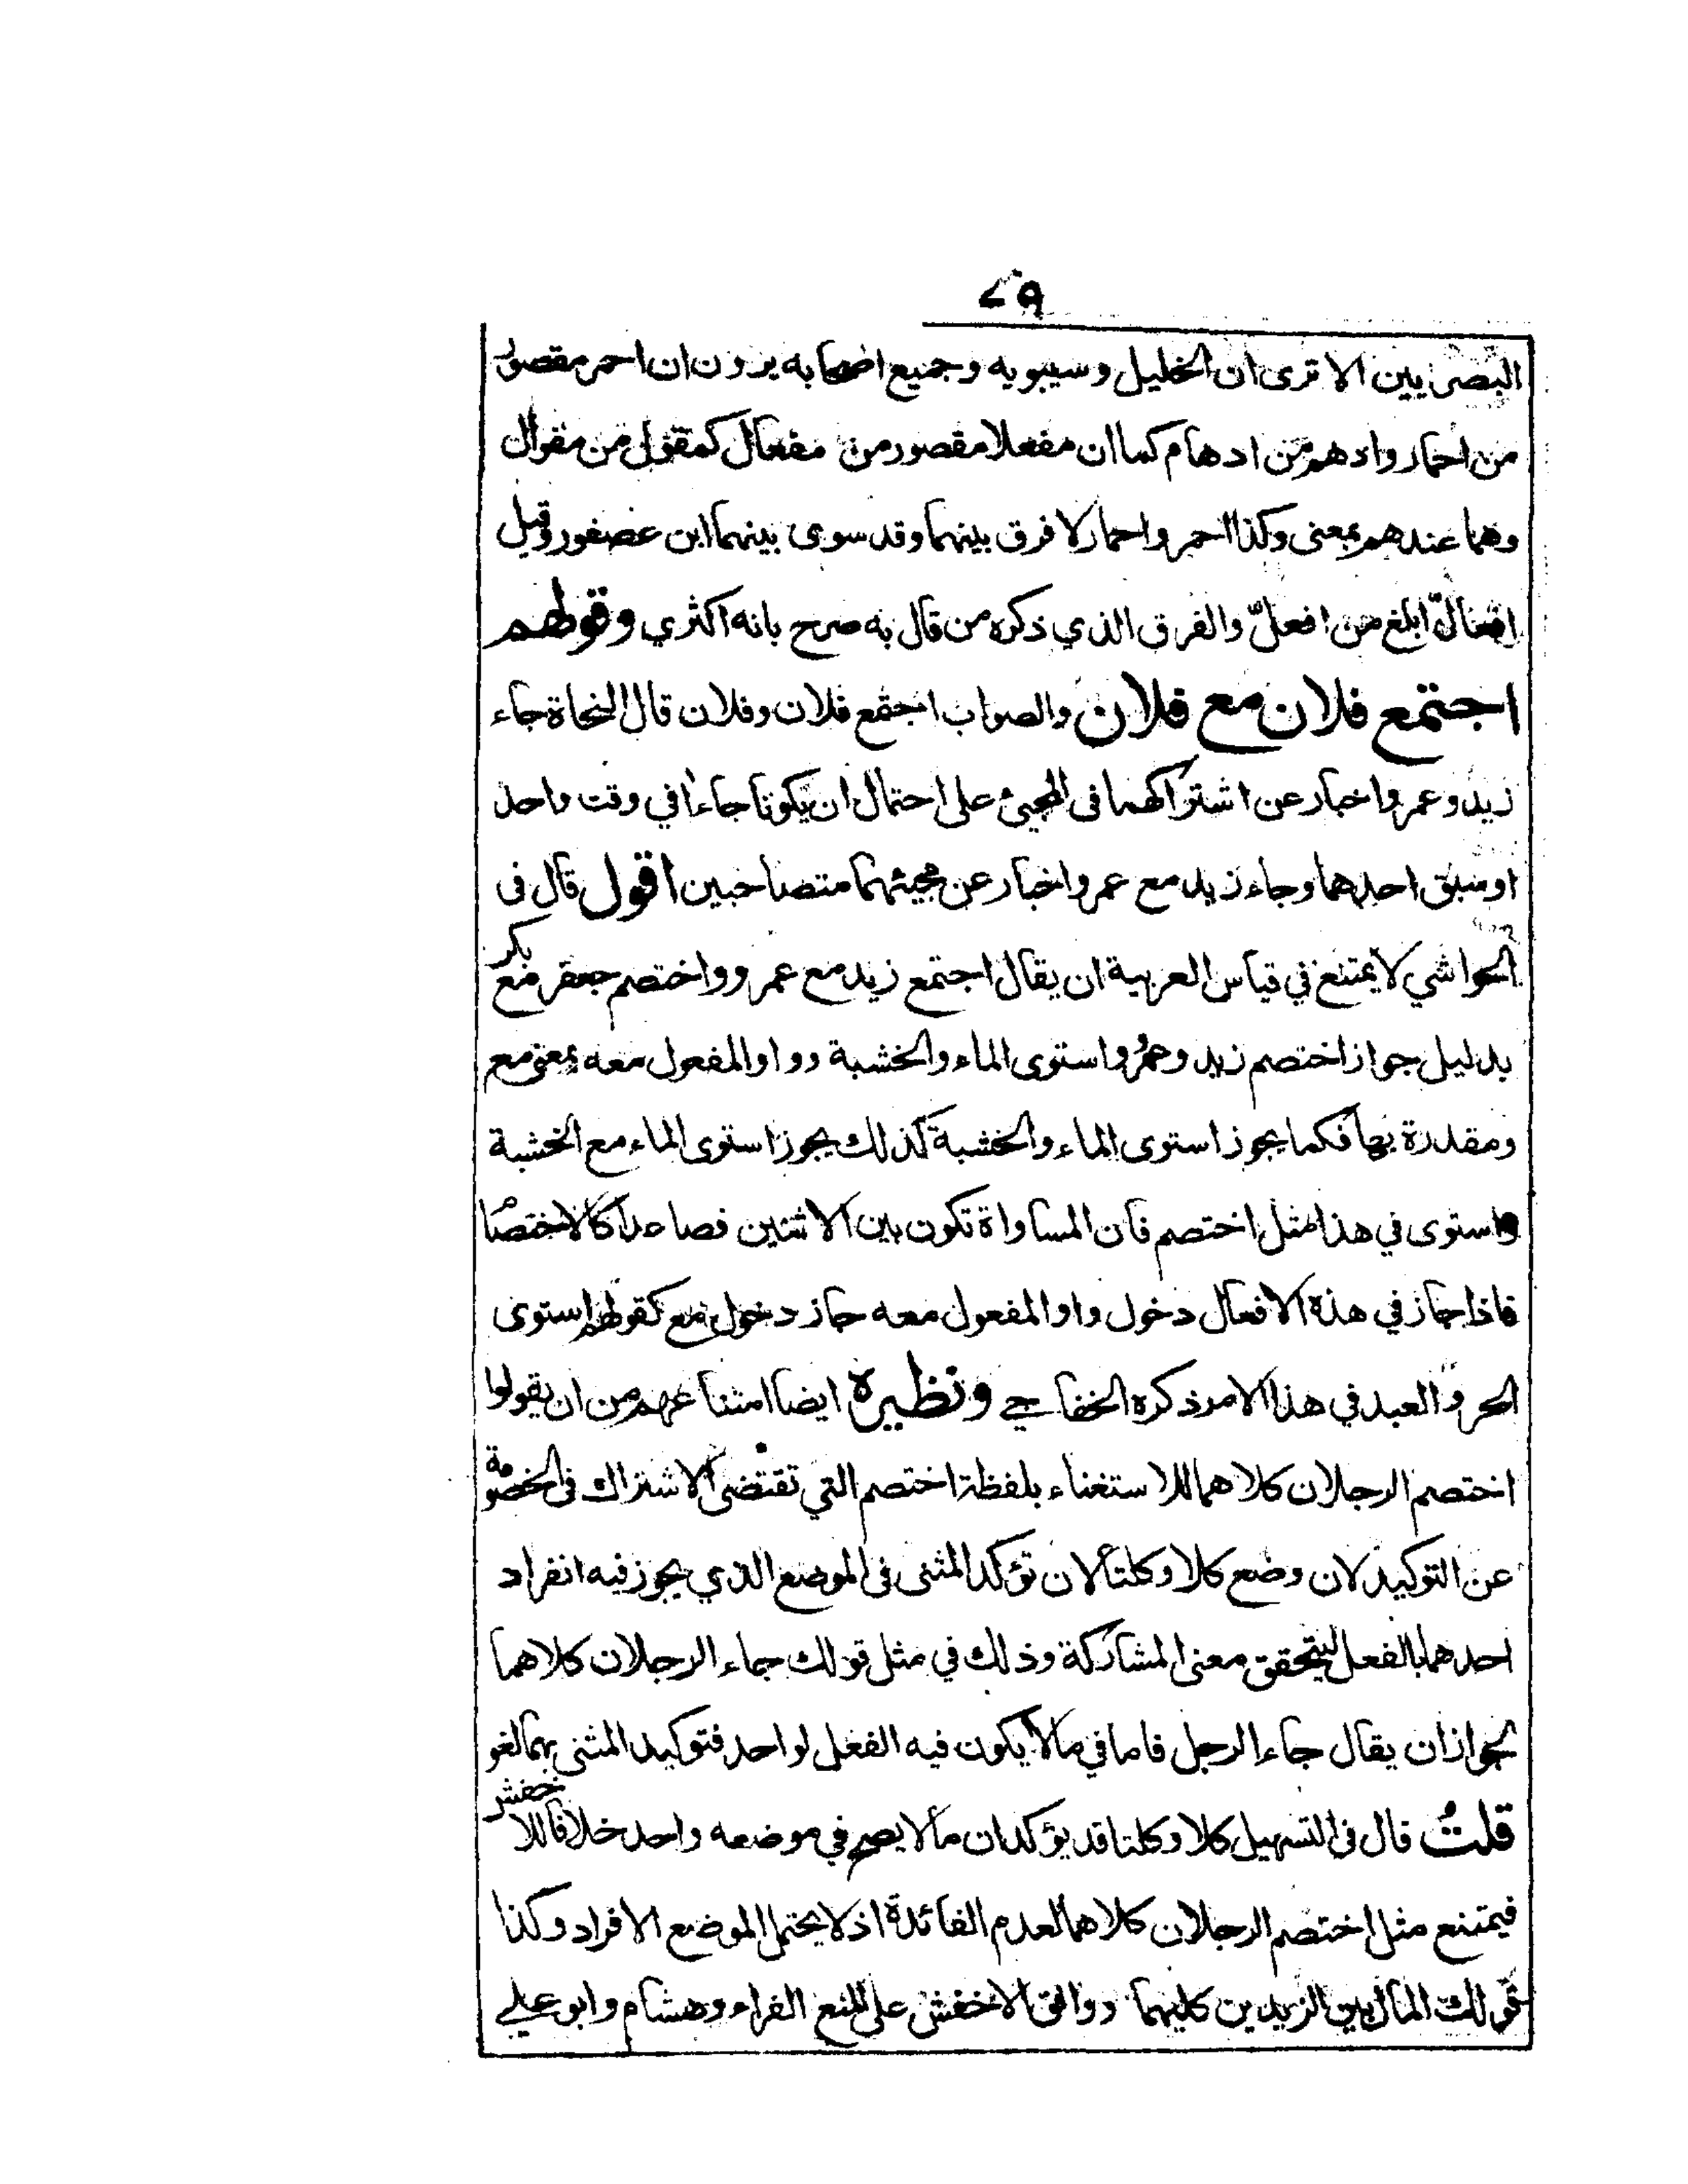 ٧٩
البصريين الا ترى ان الخليل وسيبويه وجميع اصحابه يرون ان احمر مقصور
من احمار وادهم من ادهام كما ان مفعلا مقصور من مفعال كمقول من مقوال
وهما عندهم بمعنى وكذا احمر واحمار لا فرق بينهما وقد سوى بينهما ابن عصفور وقيل
افعالّ ابلغ من افعلّ والفرق الذي ذكره من قال به صرح بانه اكثري وقولهم
اجتمع فلان مع فلان والصواب اجتمع فلان وفلان قال النحاة جاء
زيد وعمر واخبار عن اشتراكهما فى المجيئ على احتمال ان يكونا جاءا في وقت واحد
او سبق احدهما وجاء زيد مع عمر واخبار عن مجيئهما متصاحبين اقول قال فى
الحواشي لا يمتنع في قياس العربية ان يقال اجتمع زيد مع عمرو واختصم جعفر مع بكر
بدليل جواز اختصم زيد وعمرو واستوى الماء والخشبة وواو المفعول معه بمعنى مع
ومقدرة بها فكما يجوز استوى الماء والخشبة كذلك يجوز استوى الماء مع الخشبة
واستوى في هذا مثل اختصم فان المساواة تكون بين الاثنين فصاعدا كالاختصام
فاذا جاز في هذه الافعال دخول واو المفعول معه جاز دخول مع كقولهم استوى
الحر والعبد في هذا الامر ذكره الخفاجي ونظيره ايضا امتناعهم من ان يقولوا
اختصم الرجلان كلاهما للاستغناء بلفظة اختصم التي تقتضى الاشتراك فى الخصومة
عن التوكيد لان وضع كلا وكلتا لان تؤكد المثنى فى الموضع الذي يجوز فيه انفراد
احدهما بالفعل ليتحقق معنى المشاركة وذلك في مثل قولك جاء الرجلان كلاهما
لجواز ان يقال جاء الرجل فاما في ما لا يكون فيه الفعل لواحد فتوكيد المثنى بهما لغو
قلتُ قال فى التسهيل كلا وكلتا قد يؤكدان ما لا يصح في موضعه واحد خلافا للاخفش
فيمتنع مثل اختصم الرجلان كلاهما لعدم الفائدة اذ لا يحتمل الموضع الافراد وكذا
قولك المال بين الزيدين كليهما ووافق الاخفش على المنع الفراء وهشام وابو علي